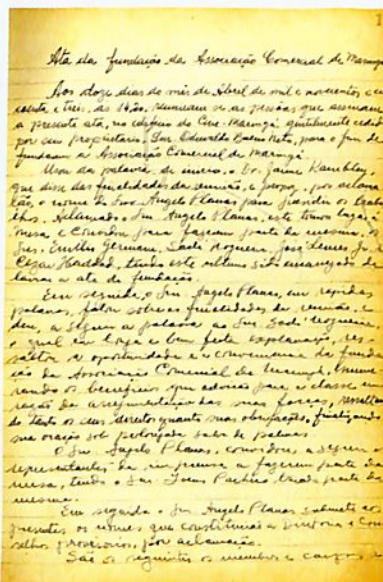 Ata da fundação da Associação Comercial de Maringá
Aos doze dias do mês de Abril de mil e novecentos e cin
coenta e tres, as 14,20, reuniram se as pessôas que assinaram
a presente ata, no edificio do Cine-Maringá gentilmente cedido
por seu proprietario, Snr. Odwaldo Bueno Neto, para o fim de
fundarem a Associação Comercial de Maringá.
Usou da palavra, de inicio, o Dr. Jaime
que disse das finalidades da reunião, e propoz, por aclama
ção, o nome do Snr Angelo Planas para presidir os traba
lhos. Aclamado o Snr Angelo Planas, este tomou lugar á
mesa e convidou para fazerem parte da mesma, os
Snrs. Emilio Germani, Nogueira, José
Cezar Haddad, tendo este ultimo sido encarregado de
lavrar a ata de fundação.
Em seguida, o Snr. Angelo Planas, em rapidas
palavras, falou sobre as finalidades da reunião, e
deu, a seguir a palavra ao Snr. Nogueira,
o qual em longa e bem feita explanação, res-
saltou a oportunidade e a conveniencia da funda
ção da Associação Comercial de Maringá, enume-
rando os beneficios que para a classe em
razão da arregimentação das suas forças, ressaltan
do tanto os seus direitos quanto suas obrigações, finalizando
sua oração sob prolongada salva de palmas
O Snr. Angelo Planas, convidou, a seguir o
representantes da imprensa a fazerem parte da
mesa, tendo o Snr. Pacheco parte da
mesma.
Em seguida o Snr. Angelo Planas submete aos
presentes os nomes que constituirão a Diretoria e Con
selhos provisorios, por aclamação.
São os seguintes os membros e cargos